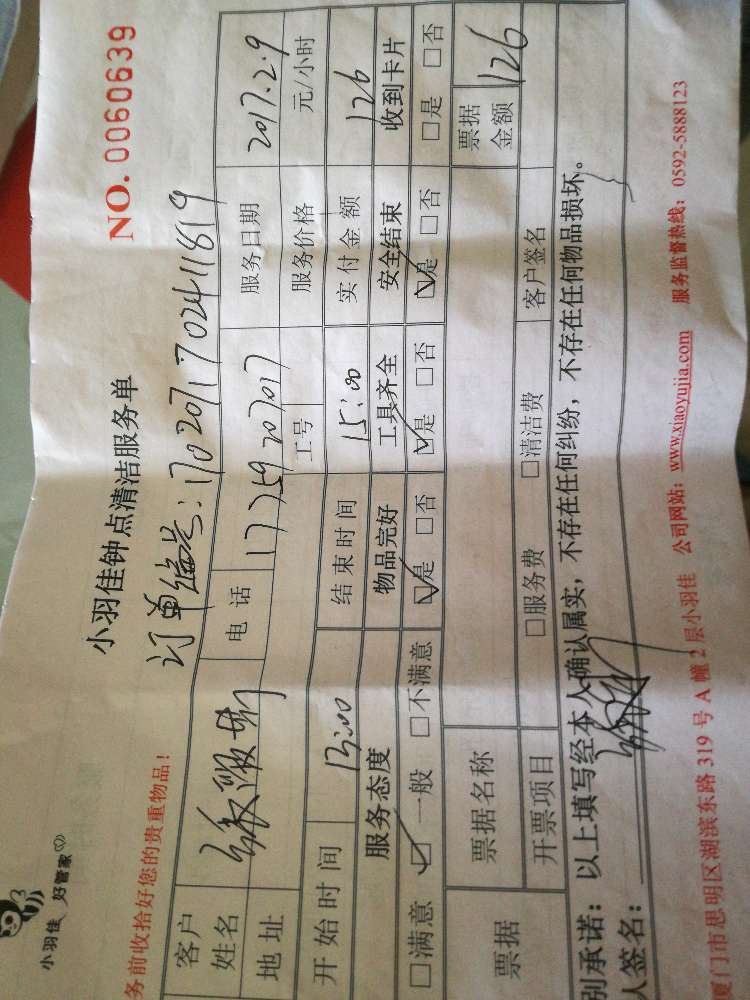 小羽佳 好管家
NO. 0060639
小羽佳钟点清洁服务单
务前收拾好您的贵重物品！
订单编号：1702071702411819
客户姓名 电话 17759207017 服务日期 2017.2.9
地址 工号 服务价格 元/小时
开始时间 13:00 结束时间 15:00 实付金额 126
服务态度 物品完好 工具齐全 安全结束 收到卡片
□满意 ☑一般 □不满意 ☑是 □否 ☑是 □否 ☑是 □否 □是 □否
票据 票据名称 票据金额 126
开票项目 □服务费 □清洁费 客户签名
别承诺：以上填写经本人确认属实，不存在任何纠纷，不存在任何物品损坏。
人签名：
厦门市思明区湖滨东路 319 号 A 幢 2 层小羽佳 公司网站：www.xiaoyujia.com 服务监督热线：0592-5888123